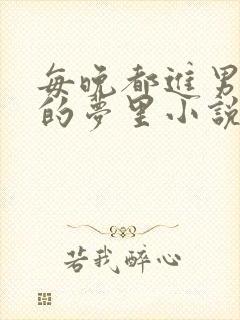 每晚都进男
的夢里小說
若我醉心